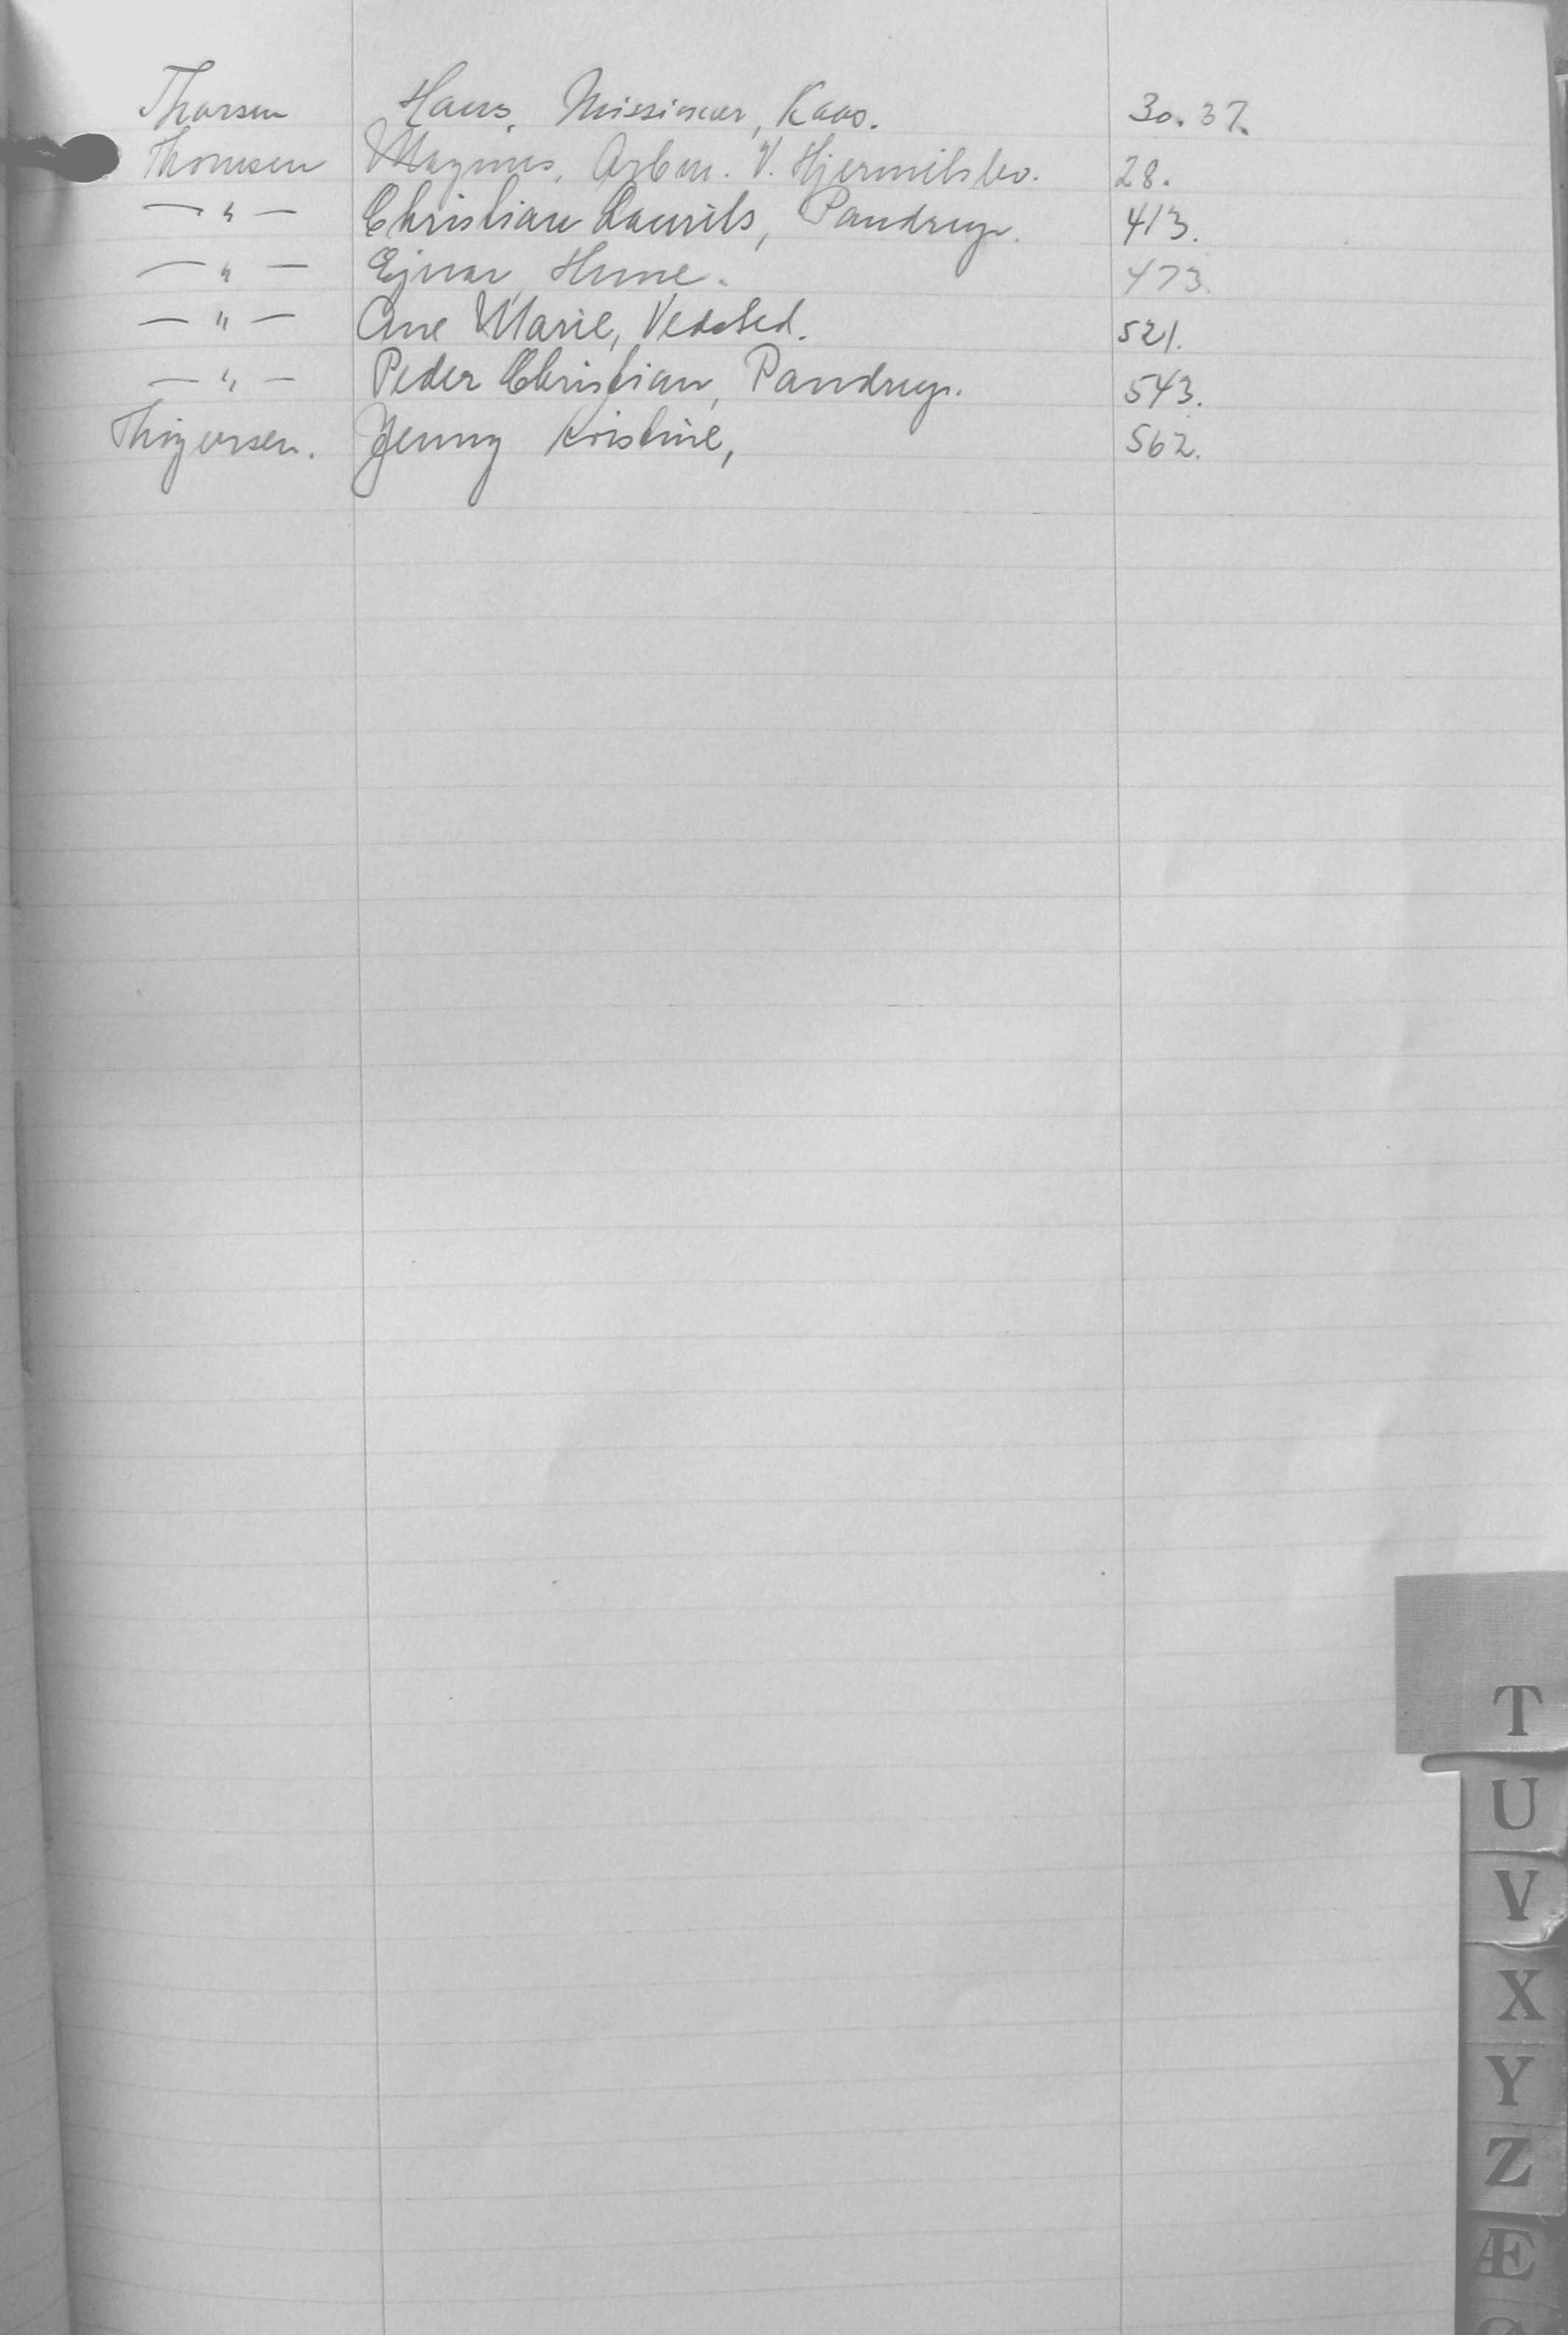 Thorsen Hans, Missionær, Kaas. 30. 37.
Thomsen Magnus, Arbm. V. Hjermitslev. 28.
— " — Christian Laurits, Pandrup. 413.
— " — Ejnar, Hune. 473.
— " — Ane Marie, Vedsted. 521.
— " — Peder Christian, Pandrup. 543.
Thigersen. Jenny Kristine, 562.
T
U
V
X
Y
Z
Æ